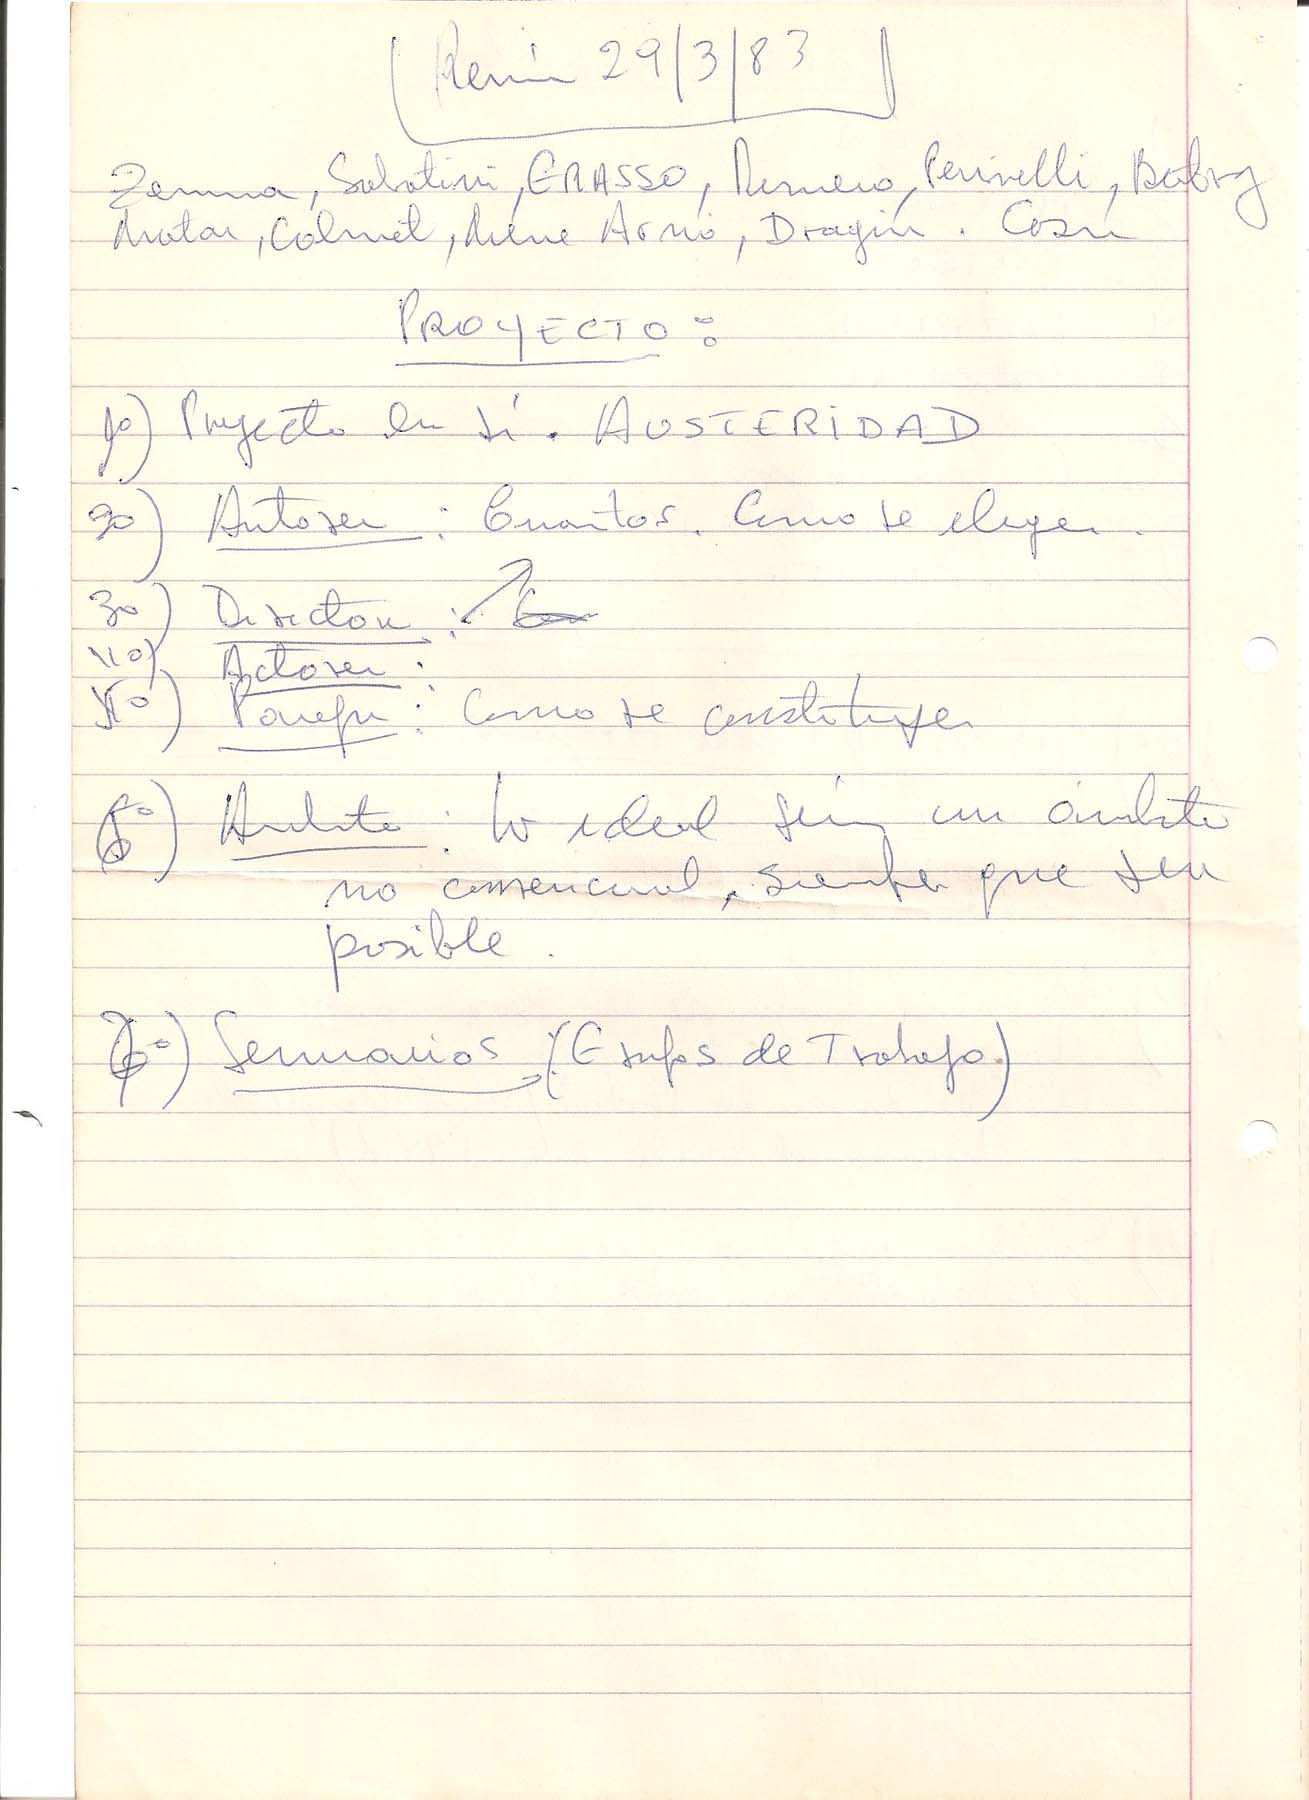 29/3/83
Zemma, Sabatini, ERASSO, Romero, Perinelli, Bobby
Matar, Calmet, Rene Arno, Dragún. Cosú
PROYECTO:
1º) Proyecto en sí. AUSTERIDAD
2º) Autores: Cuantos. Como se eligen.
3º) Directores:
4º) Actores:
5º) Parejas: Como se constituyen
6º) Ambito: lo ideal sería un ámbito
no comercial, siempre que sea
posible.
7º) Seminarios (Grupos de Trabajo)